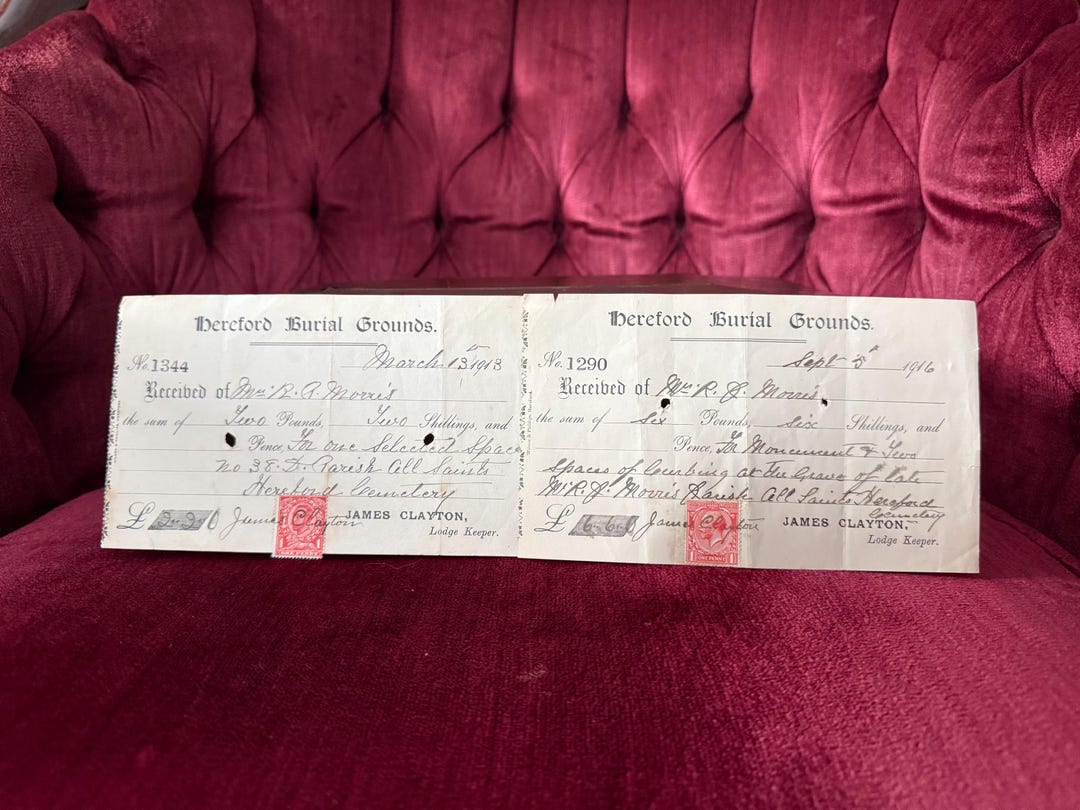 Hereford Burial Grounds.
No. 1344 March 13th 1913
Received of Mrs R. A. Morris
the sum of Two Pounds, Two Shillings, and
Pence, For one Selected Space
no 38. D. Parish All Saints
Hereford Cemetery
£ 2-2-0 James Clayton JAMES CLAYTON,
Lodge Keeper.
ONE PENNY
Hereford Burial Grounds.
No. 1290 Sept 5th 1916
Received of Mrs R. J. Morris
the sum of Six Pounds, six Shillings, and
Pence, For Monument & Two
Spaces of Curbing at the Grave of late
Mr R. J. Morris Parish All Saints Hereford
Cemetery
£ 6-6-0 James Clayton JAMES CLAYTON,
Lodge Keeper.
1 ONE PENNY 1